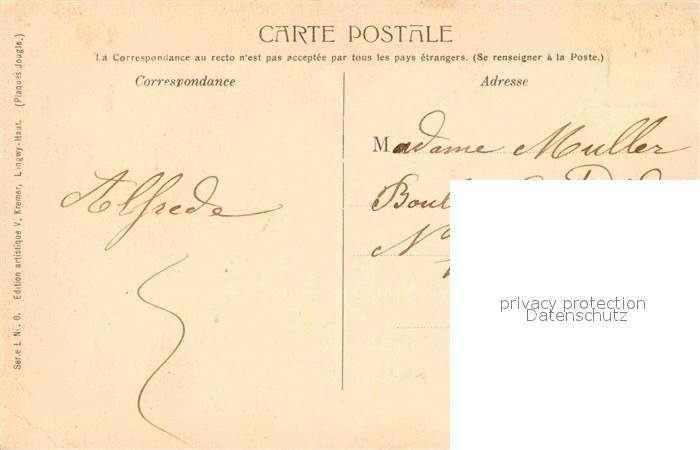 CARTE POSTALE
La Correspondance au recto n'est pas acceptée par tous les pays étrangers. (Se renseigner à la Poste.)
Correspondance
Adresse
Madame Muller
Alfrede
privacy protection
Datenschutz
Serie L Nr. 6. Edition artistique V. Kremer, Longwy-Haut. (Plaques Jougla.)